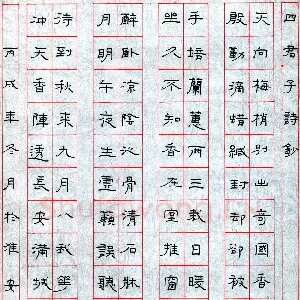 四君子詩鈔
天向梅梢別出奇國香
殷勤滴蜡緘封却卻被
手培蘭蕙兩三栽日暖
坐久不知香在室推窗
醉卧涼陰沁骨清石牀
月明午夜生虛籟誤聽
待到秋來九月八我華
冲天香陣透長安滿城
丙戌年冬月松淮安